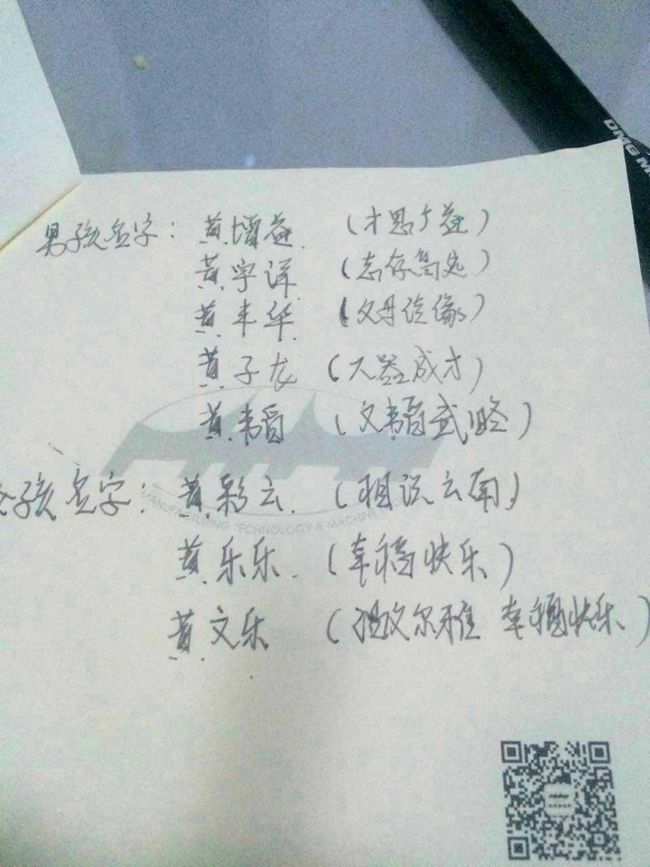 DMG M
男孩名字：黄增益（才思广益）
黄宇详（志存高远）
黄丰华（父母信缘）
黄子龙（大器成才）
黄韬（文韬武略）
孩名字：黄彩云（相说云南）
MANUFACTURING TECHNOLOGY & MACHINE
黄乐乐（幸福快乐）
黄文乐（温文尔雅 幸福快乐）